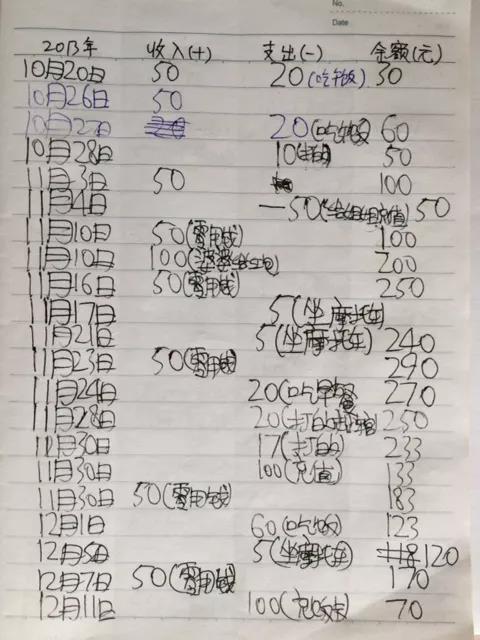 No.
Date
2013年 收入(+) 支出(-) 余额(元)
10月20日 50 20(吃午饭) 30
10月26日 50
10月27日 20(吃午饭) 60
10月28日 10 50
11月3日 50 100
11月4日 -50(给姐姐充值) 50
11月10日 50(零用钱) 100
11月10日 100(婆婆给红包) 200
11月16日 50(零用钱) 250
11月17日 5(坐摩托车)
11月21日 5(坐摩托车) 240
11月23日 50(零用钱) 290
11月24日 20(吃早餐) 270
11月28日 20(打的 250
11月30日 17(打的) 233
11月30日 100(充值) 133
11月30日 50(零用钱) 183
12月1日 60(吃饭) 123
12月5日 5(坐摩托车) 120
12月7日 50(零用钱) 170
12月11日 100 70